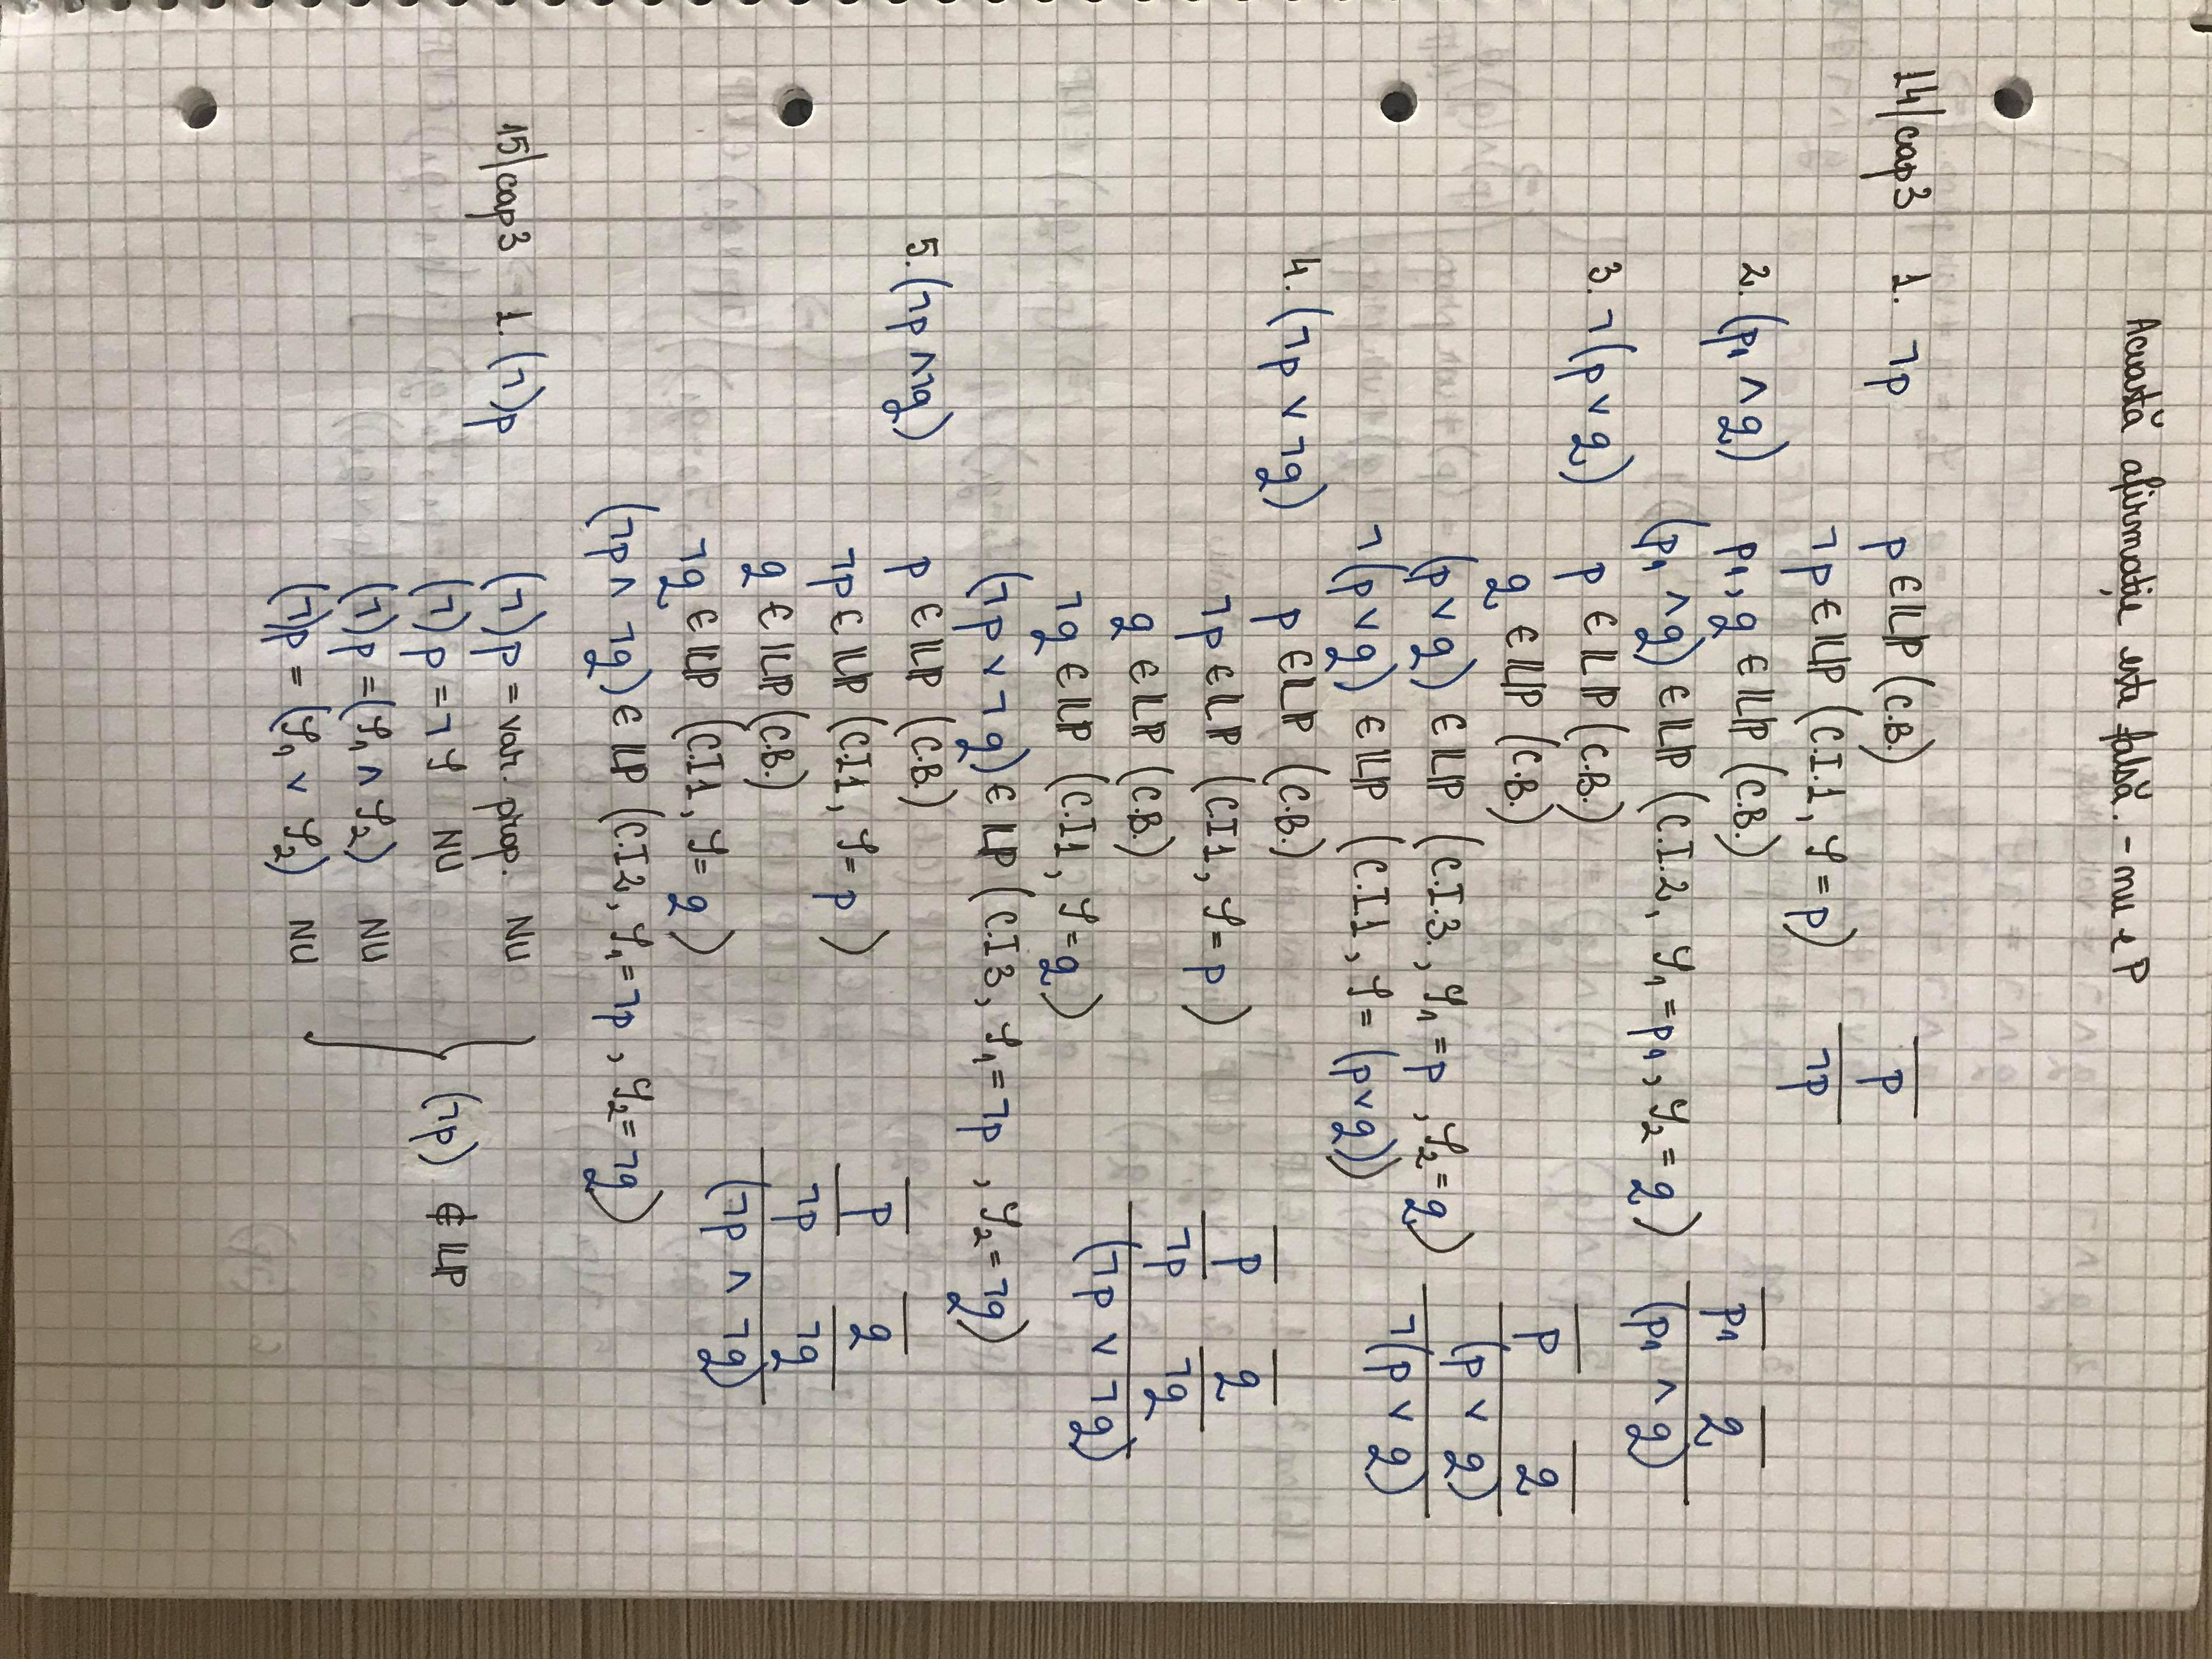 Această afirmație este falsă. - nu e P
14/cap3 1. ¬p p ∈ LP (C.B.)
¬p ∈ LP (C.I.1, φ = p)
p
¬p
2. (p₁ ∧ q) p₁, q ∈ LP (C.B.)
(p₁ ∧ q) ∈ LP (C.I.2, φ₁ = p₁, φ₂ = q)
p₁ q
(p₁ ∧ q)
3. ¬(p ∨ q) p ∈ LP (C.B.)
q ∈ LP (C.B.)
(p ∨ q) ∈ LP (C.I.3., φ₁ = p, φ₂ = q)
¬(p ∨ q) ∈ LP (C.I.1, φ = (p ∨ q))
p q
(p ∨ q)
¬(p ∨ q)
4. (¬p ∨ ¬q) p ∈ LP (C.B.)
¬p ∈ LP (C.I1, φ = p)
q ∈ LP (C.B.)
¬q ∈ LP (C.I1, φ = q)
(¬p ∨ ¬q) ∈ LP (C.I3, φ₁ = ¬p, φ₂ = ¬q)
p q
¬p ¬q
(¬p ∨ ¬q)
5. (¬p ∧ ¬q) p ∈ LP (C.B.)
¬p ∈ LP (C.I1, φ = p)
q ∈ LP (C.B.)
¬q ∈ LP (C.I1, φ = q)
(¬p ∧ ¬q) ∈ LP (C.I2, φ₁ = ¬p, φ₂ = ¬q)
p q
¬p ¬q
(¬p ∧ ¬q)
15/cap3 1. (¬)p (¬)p = var. prop. NU
(¬)p = ¬φ NU
(¬)p = (φ₁ ∧ φ₂) NU
(¬)p = (φ₁ ∨ φ₂) NU
(¬p) ∉ LP